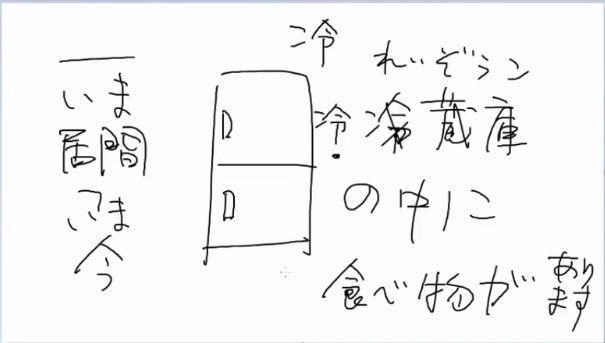 いま
居間
いま
今
冷
れいぞうこ
冷 冷蔵庫
の中に
食べ物が あり
ます